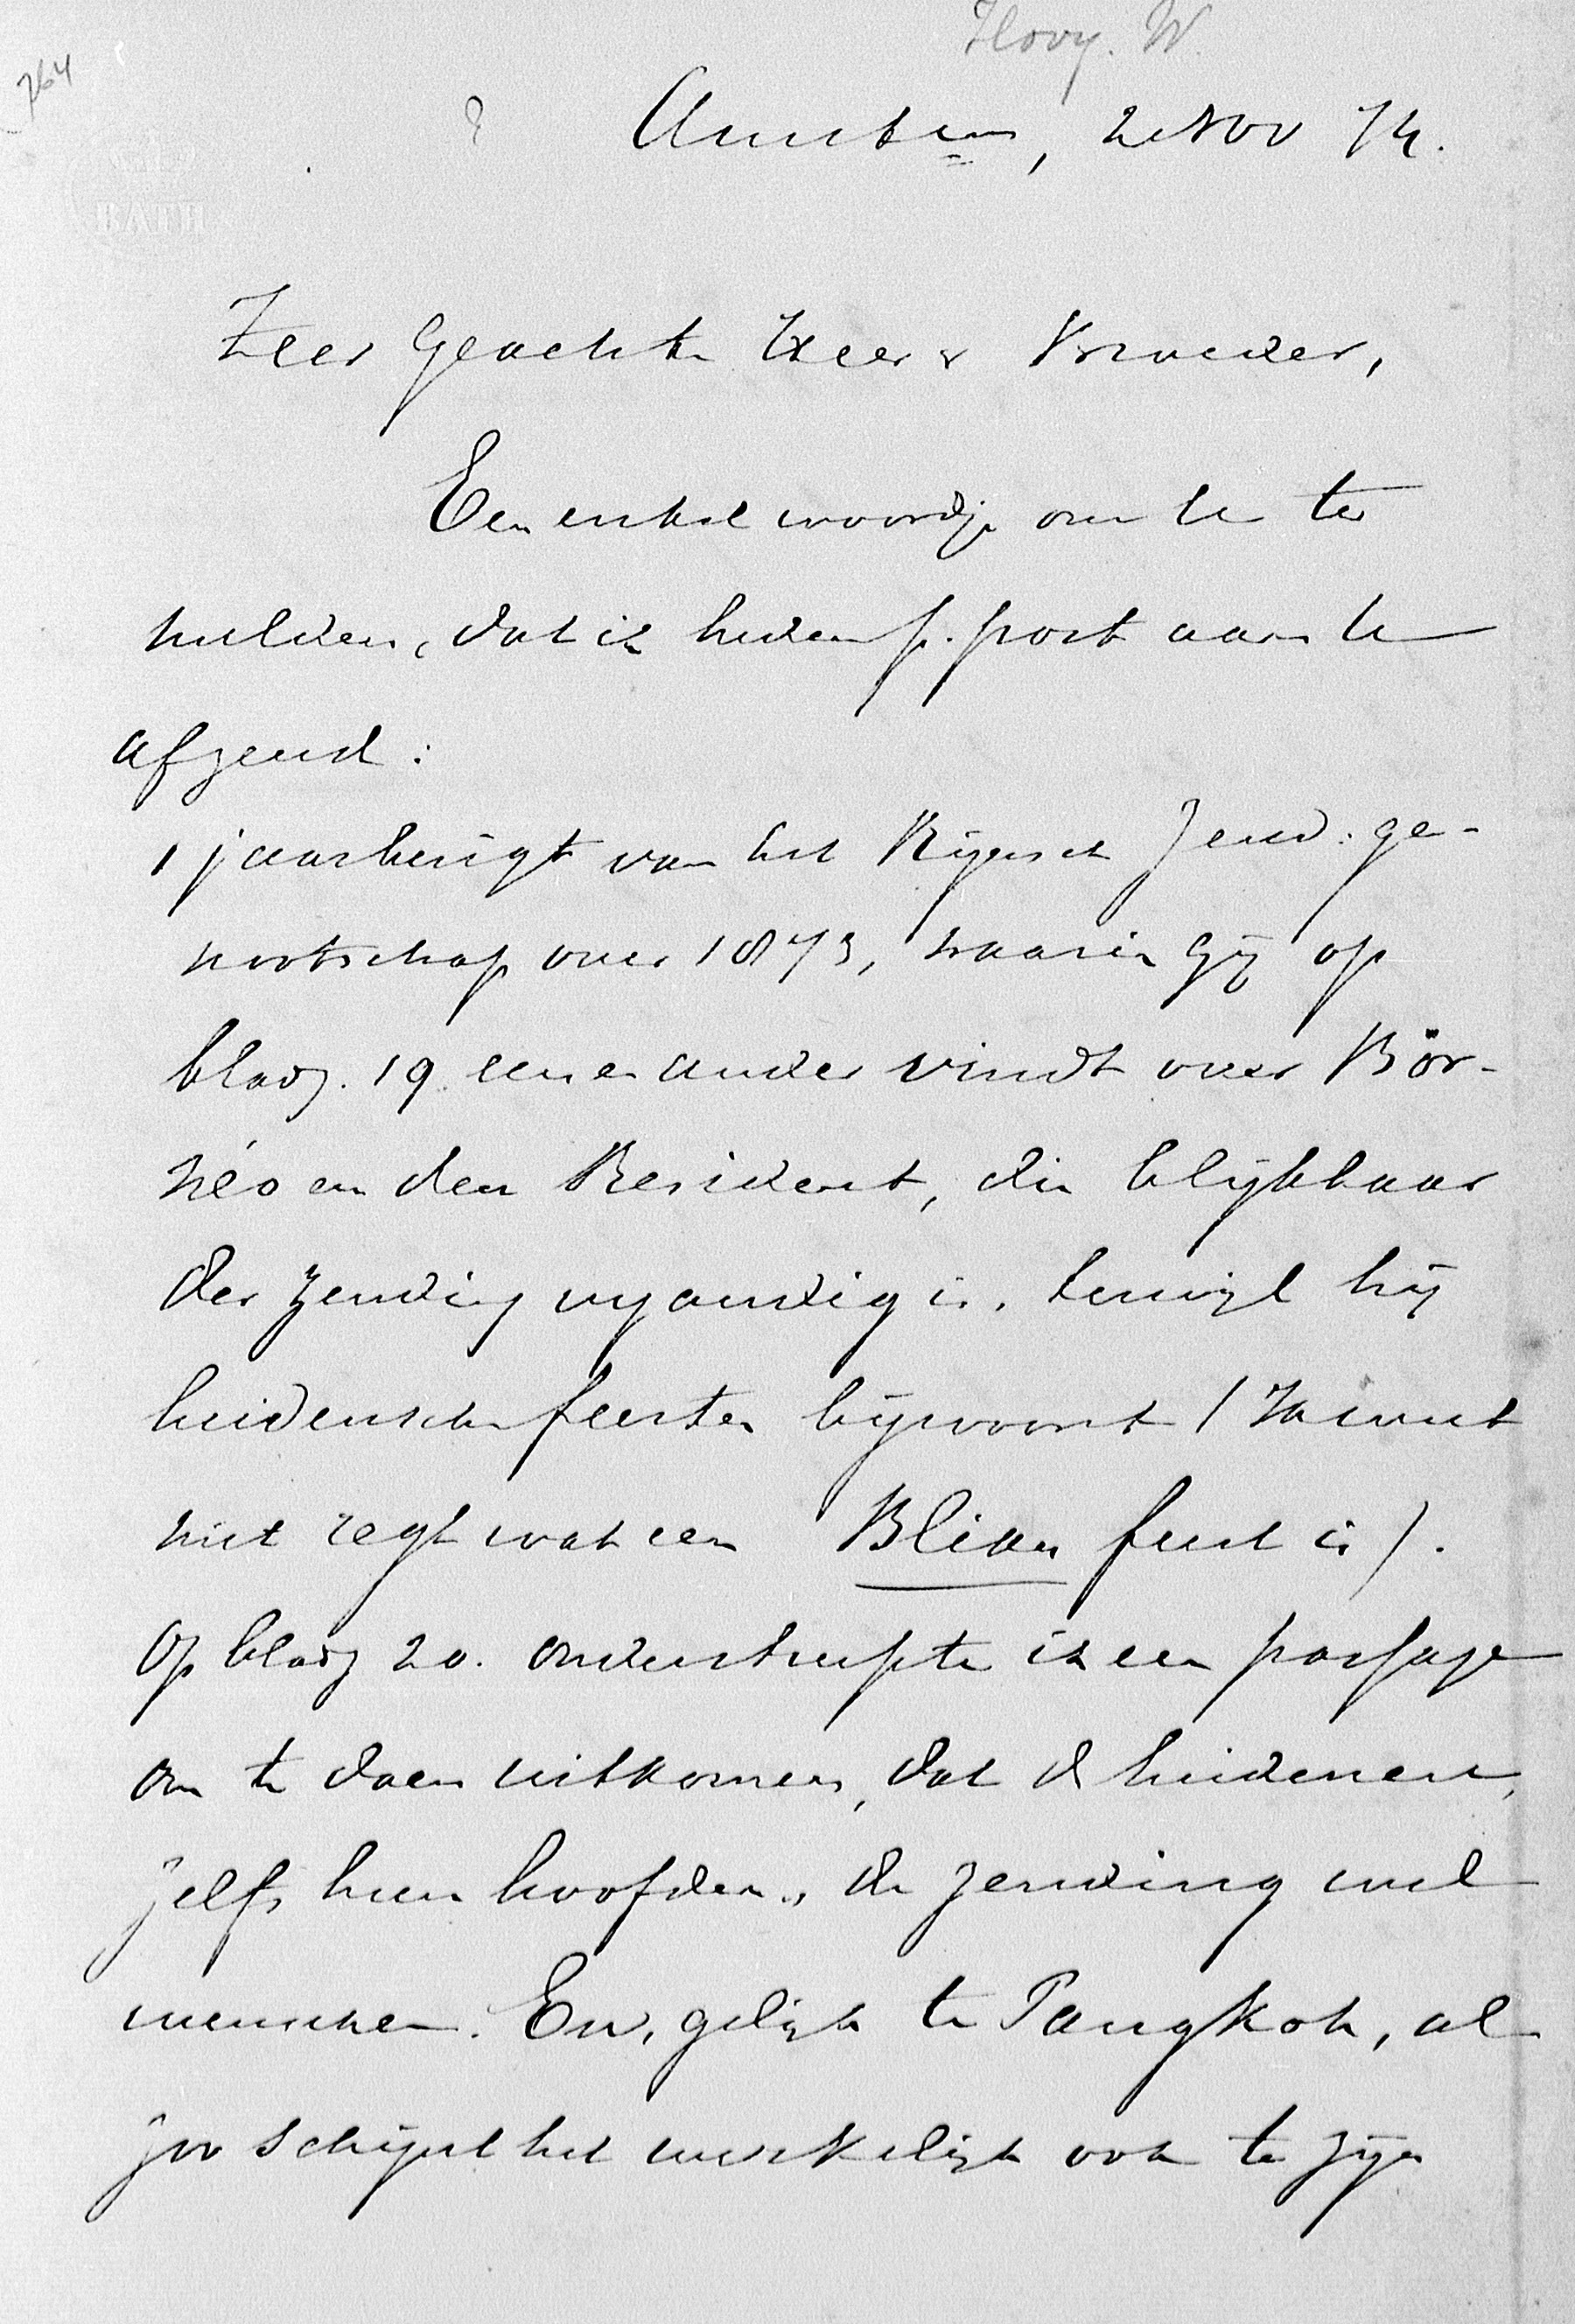 Hovy. W.
764
BATH
Amstm, 2 Nov 74.
Zeer Geachte Heer & Broeder,
Een enkel woordje om U te
melden, dat ik heden p. post aan U
afzend:
1 jaarberigt van het Rijnsch Zend: ge-
nootschap over 1873, waarin Gij op
bladz. 19 een en ander vindt over Bor-
néo en den Resident, die blijkbaar
der zending vyandig is, terwijl hij
heidensche feesten bijwoont (Ik weet
niet regt wat een Blian feest is).
Op bladz 20. onderstreepte ik een passage
om te doen uitkomen, dat de heidenen,
zelfs hun hoofden, de zending wel
wenschen. En, gelijk te Pangkoh, al-
zoo schijnt het werkelijk ook te zijn